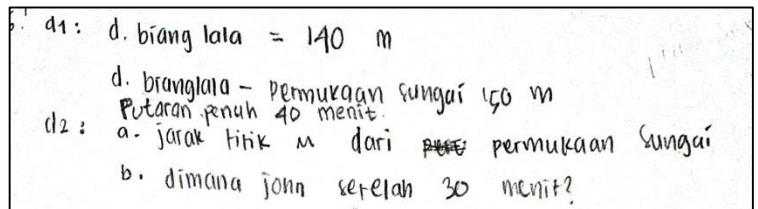 d1: d. biang lala = 140 m
d. bianglala - permukaan sungai 150 m
Putaran penuh 40 menit.
d2: a. jarak titik M dari permukaan sungai
b. dimana john setelah 30 menit?